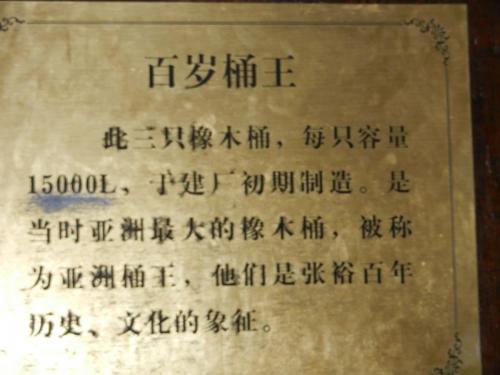 百岁桶王
此三只橡木桶，每只容量
15000L，于建厂初期制造。是
当时亚洲最大的橡木桶，被称
为亚洲桶王，他们是张裕百年
历史、文化的象征。